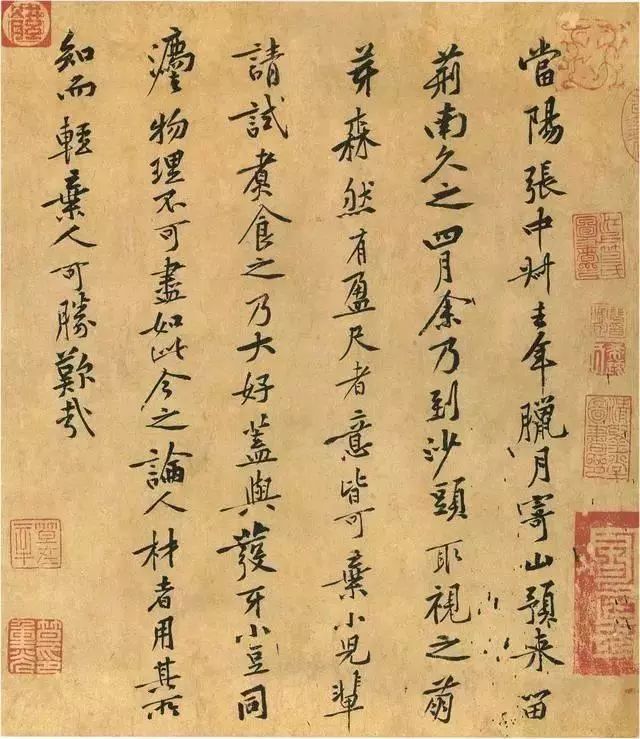 當陽張中叔去年臘月寄山預來留
荆南久之四月余乃到沙頭取視之萌
芽森然有盈尺者意皆可棄小兒輩
請試煮食之乃大好蓋與發牙小豆同
法物理不可盡如此今之論人材者用其所
知而輕棄人可勝歎哉